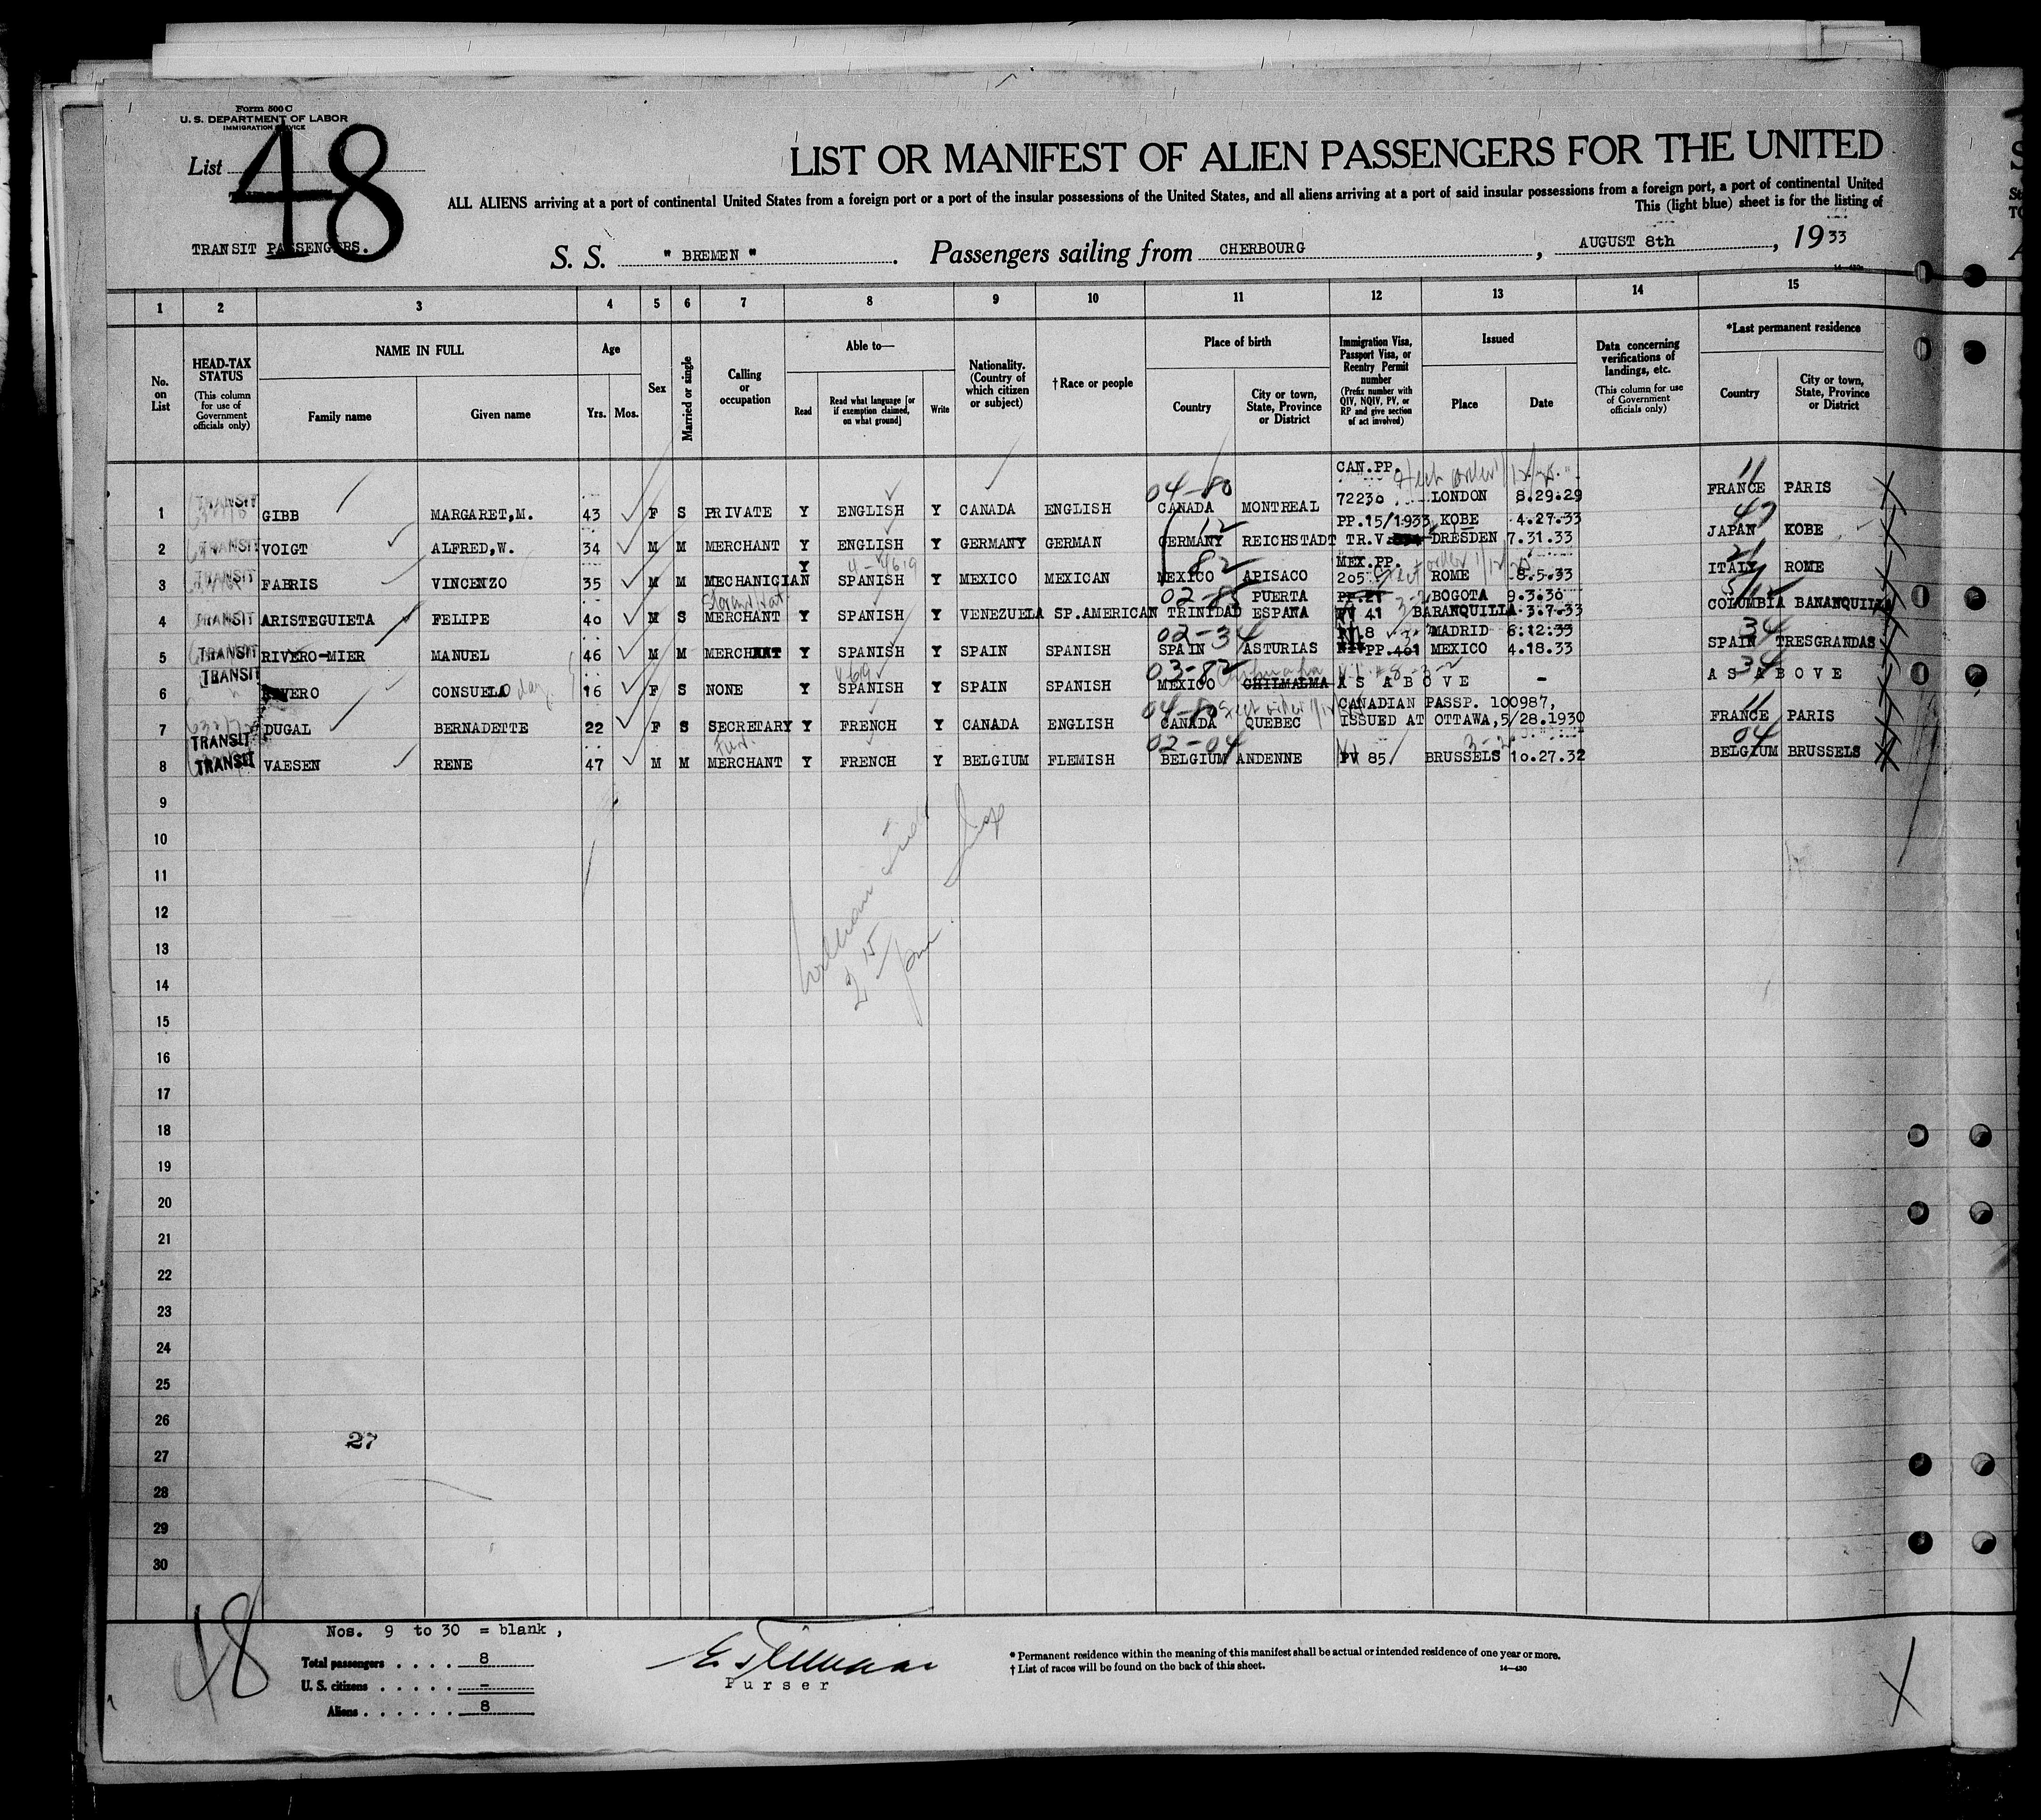 Form 500 C
U. S. DEPARTMENT OF LABOR
IMMIGRATION SERVICE
List 48
TRANSIT PASSENGERS.
LIST OR MANIFEST OF ALIEN PASSENGERS FOR THE UNITED
ALL ALIENS arriving at a port of continental United States from a foreign port or a port of the insular possessions of the United States, and all aliens arriving at a port of said insular possessions from a foreign port, a port of continental United
This (light blue) sheet is for the listing of
S. S. " BREMEN " . Passengers sailing from CHERBOURG , AUGUST 8th , 19 33
1 2 3 4 5 6 7 8 9 10 11 12 13 14 15
No. on List
HEAD-TAX STATUS (This column for use of Government officials only)
NAME IN FULL
Family name Given name
Age
Yrs. Mos.
Sex
Married or single
Calling or occupation
Able to—
Read
Read what language [or if exemption claimed, on what ground]
Write
Nationality. (Country of which citizen or subject)
†Race or people
Place of birth
Country
City or town, State, Province or District
Immigration Visa, Passport Visa, or Reentry Permit number (Prefix number with QIV, NQIV, PV, or RP and give section of act involved)
Issued
Place Date
Data concerning verifications of landings, etc. (This column for use of Government officials only)
*Last permanent residence
Country
City or town, State, Province or District
CAN.PP.
04-80 11
1 TRANSIT GIBB MARGARET,M. 43 F S PRIVATE Y ENGLISH Y CANADA ENGLISH CANADA MONTREAL 72230 LONDON 8.29.29 FRANCE PARIS
PP.15/1933 KOBE 4.27.33
12
2 TRANSIT VOIGT ALFRED,W. 34 M M MERCHANT Y ENGLISH Y GERMANY GERMAN GERMANY REICHSTADT TR.V. DRESDEN 7.31.33 JAPAN KOBE
MEX.PP.
82
3 TRANSIT FABRIS VINCENZO 35 M M MECHANICIAN Y SPANISH Y MEXICO MEXICAN MEXICO APISACO 205 ROME 8.5.33 ITALY ROME
02-85 PUERTA PP.21 BOGOTA 9.3.30
4 TRANSIT ARISTEGUIETA FELIPE 40 M S MERCHANT Y SPANISH Y VENEZUELA SP.AMERICAN TRINIDAD ESPANA PV 41 BARANQUILLA 3.7.33 COLUMBIA BANANQUILLA
02-34 8 MADRID 6.12.33 34
5 TRANSIT RIVERO-MIER MANUEL 46 M M MERCHANT Y SPANISH Y SPAIN SPANISH SPAIN ASTURIAS PP.461 MEXICO 4.18.33 SPAIN TRESGRANDAS
03-82 34
6 TRANSIT RIVERO CONSUELO 16 F S NONE Y SPANISH Y SPAIN SPANISH MEXICO CHILMALMA AS ABOVE - AS ABOVE
04-80 CANADIAN PASSP. 100987, 11
7 TRANSIT DUGAL BERNADETTE 22 F S SECRETARY Y FRENCH Y CANADA ENGLISH CANADA QUEBEC ISSUED AT OTTAWA,5/28.1930 FRANCE PARIS
02-04 04
8 TRANSIT VAESEN RENE 47 M M MERCHANT Y FRENCH Y BELGIUM FLEMISH BELGIUM ANDENNE PV 85 BRUSSELS 10.27.32 BELGIUM BRUSSELS
9
10
11
12
13
14
15
16
17
18
19
20
21
22
23
24
25
26
27
27
28
29
30
48
Nos. 9 to 30 = blank ,
Total passengers . . . . 8
U. S. citizens . . . . . -
Aliens . . . . . . 8
Purser
* Permanent residence within the meaning of this manifest shall be actual or intended residence of one year or more.
† List of races will be found on the back of this sheet.
14—430